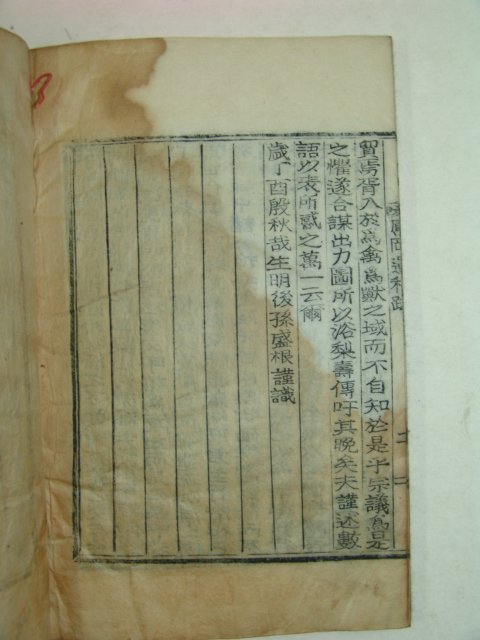 貿焉胥入於爲禽爲獸之域而不自知於是乎宗議爲是
之懼遂合謀出力圖所以浴梨壽傳吁其晩矣夫謹述數
語以表所感之萬一云爾
歲丁酉殷秋哉生明後孫盛根謹識